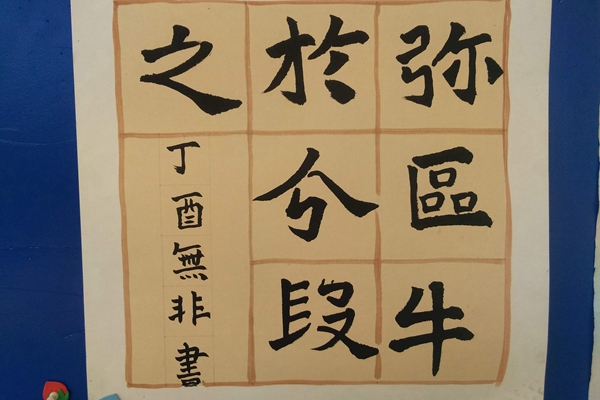 弥區牛
於兮段
之
丁酉無非書